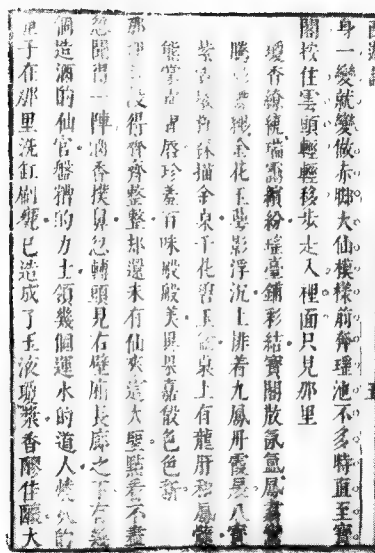 身一變就變做赤脚大仙模樣前奔瑤池不多時直至寶
閣按住雲頭輕輕移步走入裡面只見那里
瓊香繚繞瑞靄繽紛瑤臺鋪彩結寶閣散氤氳鳳
騰形縹緲金花玉萼影浮沉上排着九鳳丹霞扆八寶
紫霓墩描金桌千花碧玉盆桌上有龍肝和鳳髓
熊掌與猩唇珍羞百味般般美異果嘉殽色色新
那里得齊齊整整却還未有仙來這大聖點看不盡
忽聞得一陣酒香撲鼻忽轉頭見右壁廂長廊之下有幾
個造酒的仙官盤糟的力士領幾個運水的道人燒火的
童子在那里洗缸刷甕已造成了玉液瓊漿香醪佳釀大